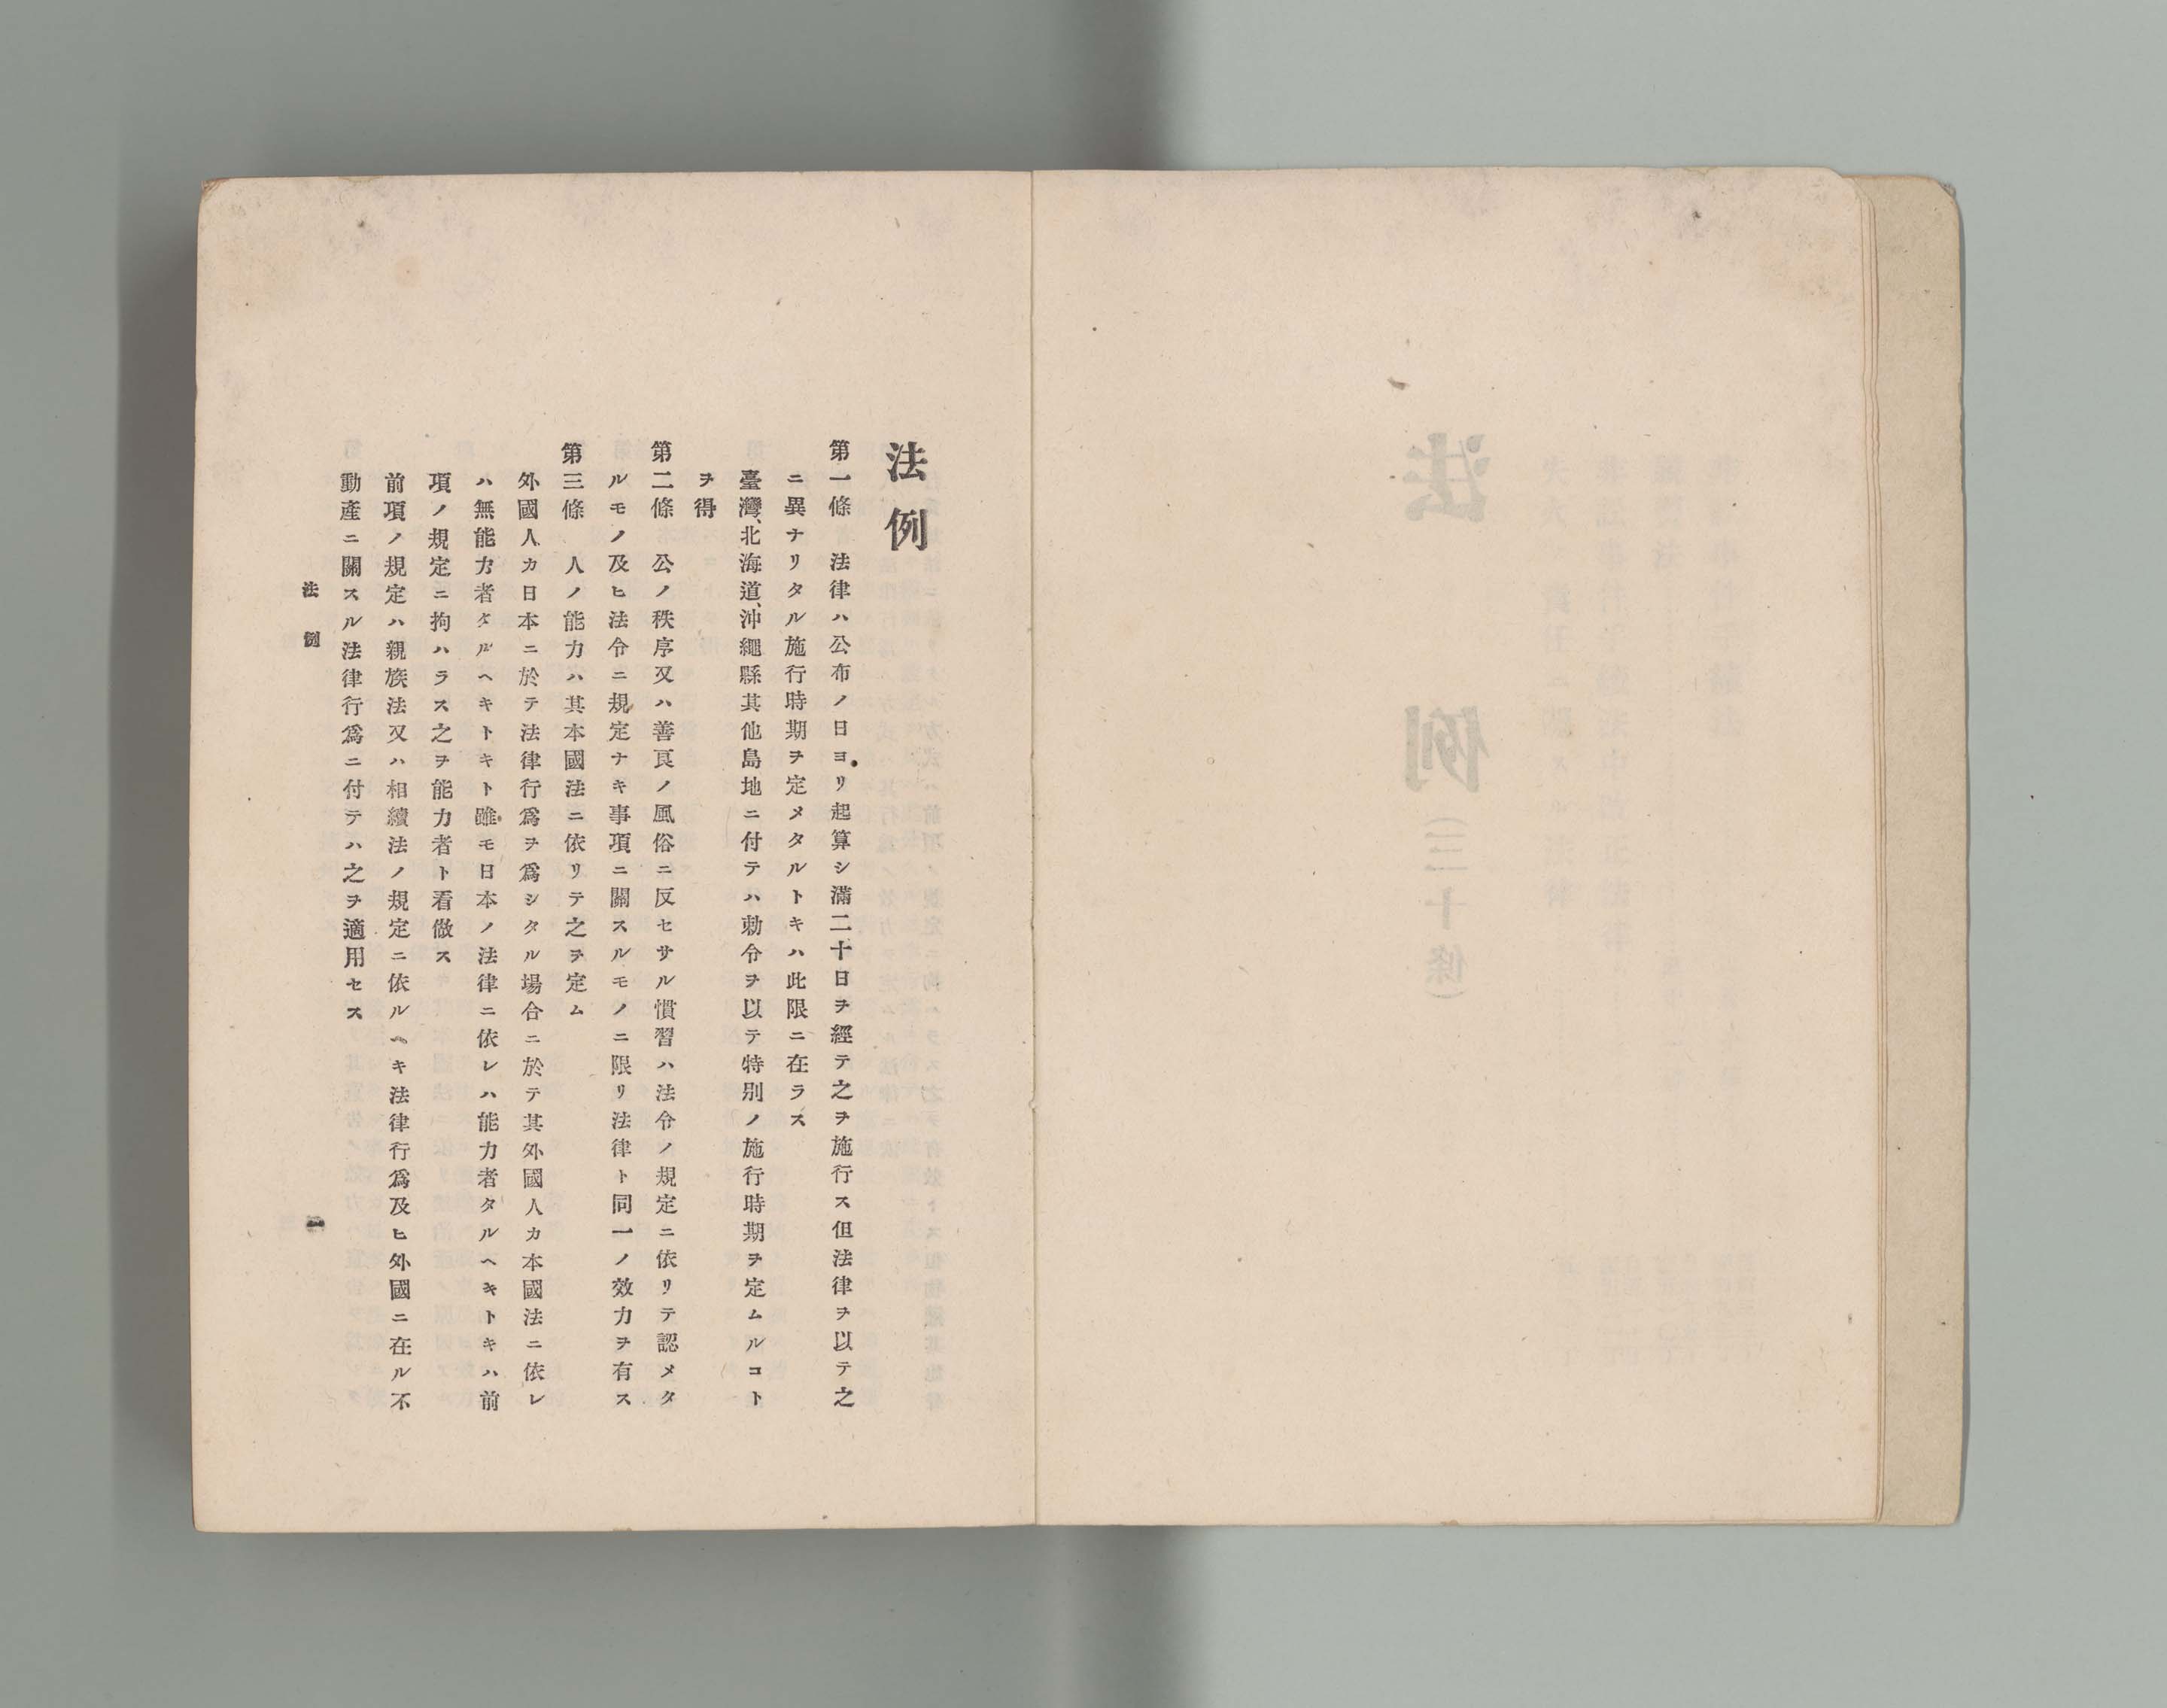 法例
第一條　法律ハ公布ノ日ヨリ起算シ滿二十日ヲ經テ之ヲ施行ス但法律ヲ以テ之
ニ異ナリタル施行時期ヲ定メタルトキハ此限ニ在ラス
臺灣、北海道、沖繩縣其他島地ニ付テハ勅令ヲ以テ特別ノ施行時期ヲ定ムルコト
ヲ得
第二條　公ノ秩序又ハ善良ノ風俗ニ反セサル慣習ハ法令ノ規定ニ依リテ認メタ
ルモノ及ヒ法令ニ規定ナキ事項ニ關スルモノニ限リ法律ト同一ノ效力ヲ有ス
第三條　人ノ能力ハ其本國法ニ依リテ之ヲ定ム
外國人カ日本ニ於テ法律行爲ヲ爲シタル場合ニ於テ其外國人カ本國法ニ依レ
ハ無能力者タルヘキトキト雖モ日本ノ法律ニ依レハ能力者タルヘキトキハ前
項ノ規定ニ拘ハラス之ヲ能力者ト看做ス
前項ノ規定ハ親族法又ハ相續法ノ規定ニ依ルヘキ法律行爲及ヒ外國ニ在ル不
動產ニ關スル法律行爲ニ付テハ之ヲ適用セス
法例
一